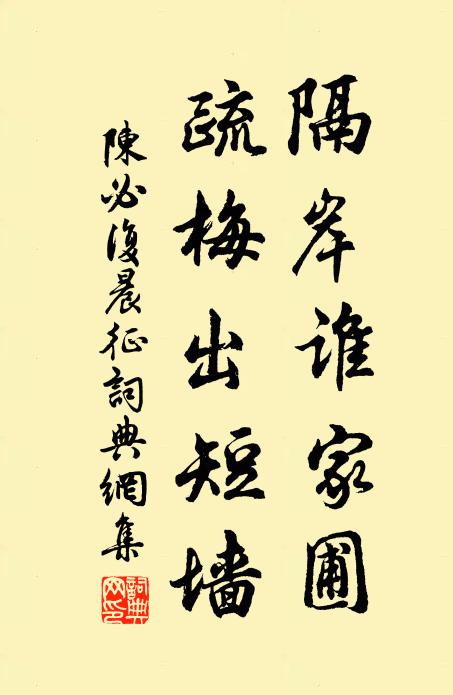 隔岸谁家圃
疏梅出短墙
陳必復晨征詞典網集
詞典网印